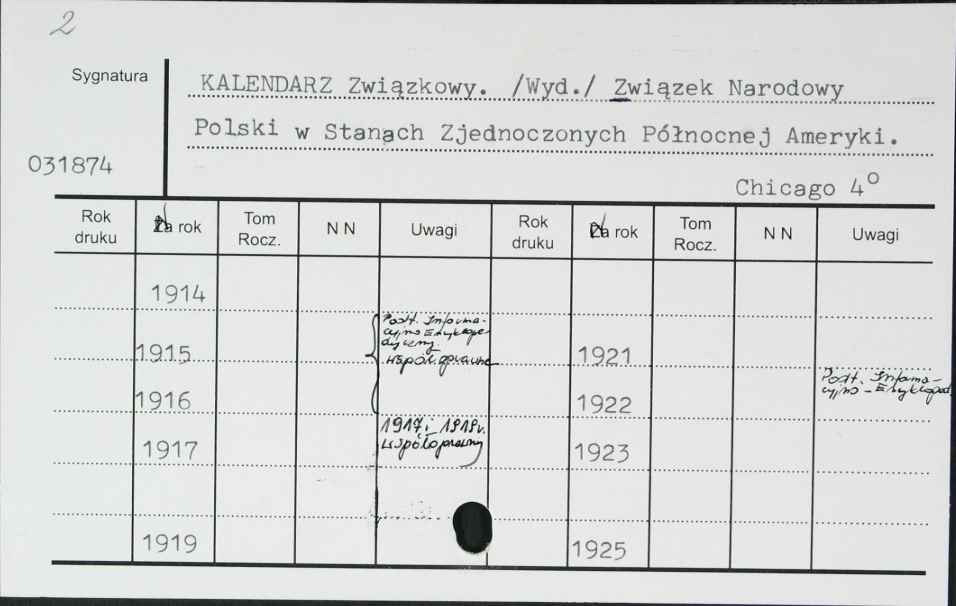 2
Sygnatura
KALENDARZ Związkowy. /Wyd./ Związek Narodowy
Polski w Stanach Zjednoczonych Północnej Ameryki.
031874
Chicago 4°
Rok druku Za rok Tom Rocz. N N Uwagi Rok druku Za rok Tom Rocz. N N Uwagi
1914
1915 Podt. Informa-
cyjno Encyklope-
dyczny
współoprawne 1921
1916 1922 Podt. Informa-
cyjno-Encykloped.
1917 1917 i 1918 r.
współoprawny 1923
1919 1925